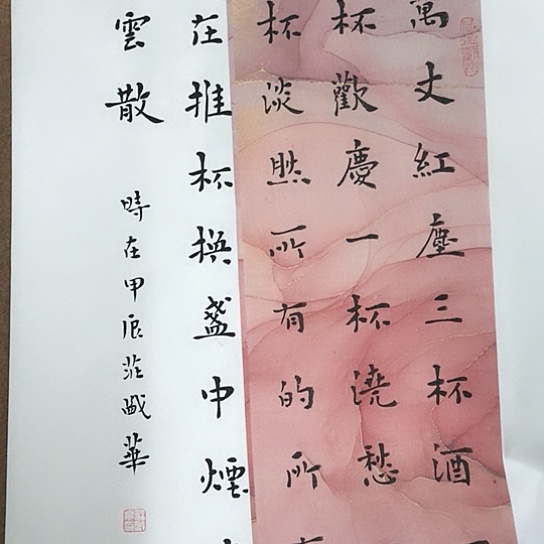 萬丈紅塵三杯酒
杯歡慶一杯澆愁
杯淡然所有的所
在推杯換盞中煙
雲散
時在甲辰
華